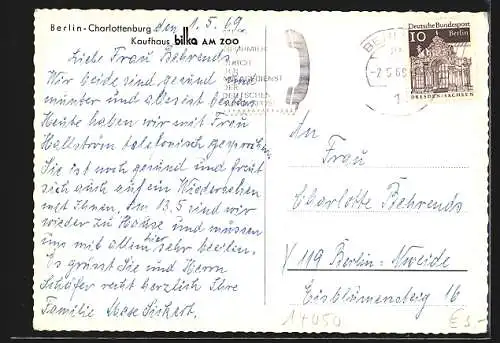 Berlin-Charlottenburg den 1.5.69
Kaufhaus bilka AM ZOO
Liebe Frau Behrends
Wir beide sind gesund und
munter und alles ist
Heute haben wir mit Frau
Hallström telefonisch gesprochen
Sie ist noch gesund und freut
sich auch auf ein Wiedersehen
mit Ihnen. Am 13.5 sind wir
wieder zu Hause und müssen
uns mit allem hier sehr beeilen.
Es grüsst Sie und Herrn
Schäfer recht herzlich Ihre
Familie
DER
DEUTSCHEN
BERLIN
-2.5.69
1
Deutsche Bundespost
10 Berlin
DRESDEN/SACHSEN
An
Frau
Charlotte Behrends
119 Berlin-
Eisblumensteig 16
€ 3,-